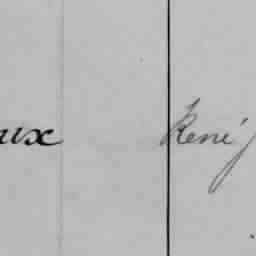 ux René